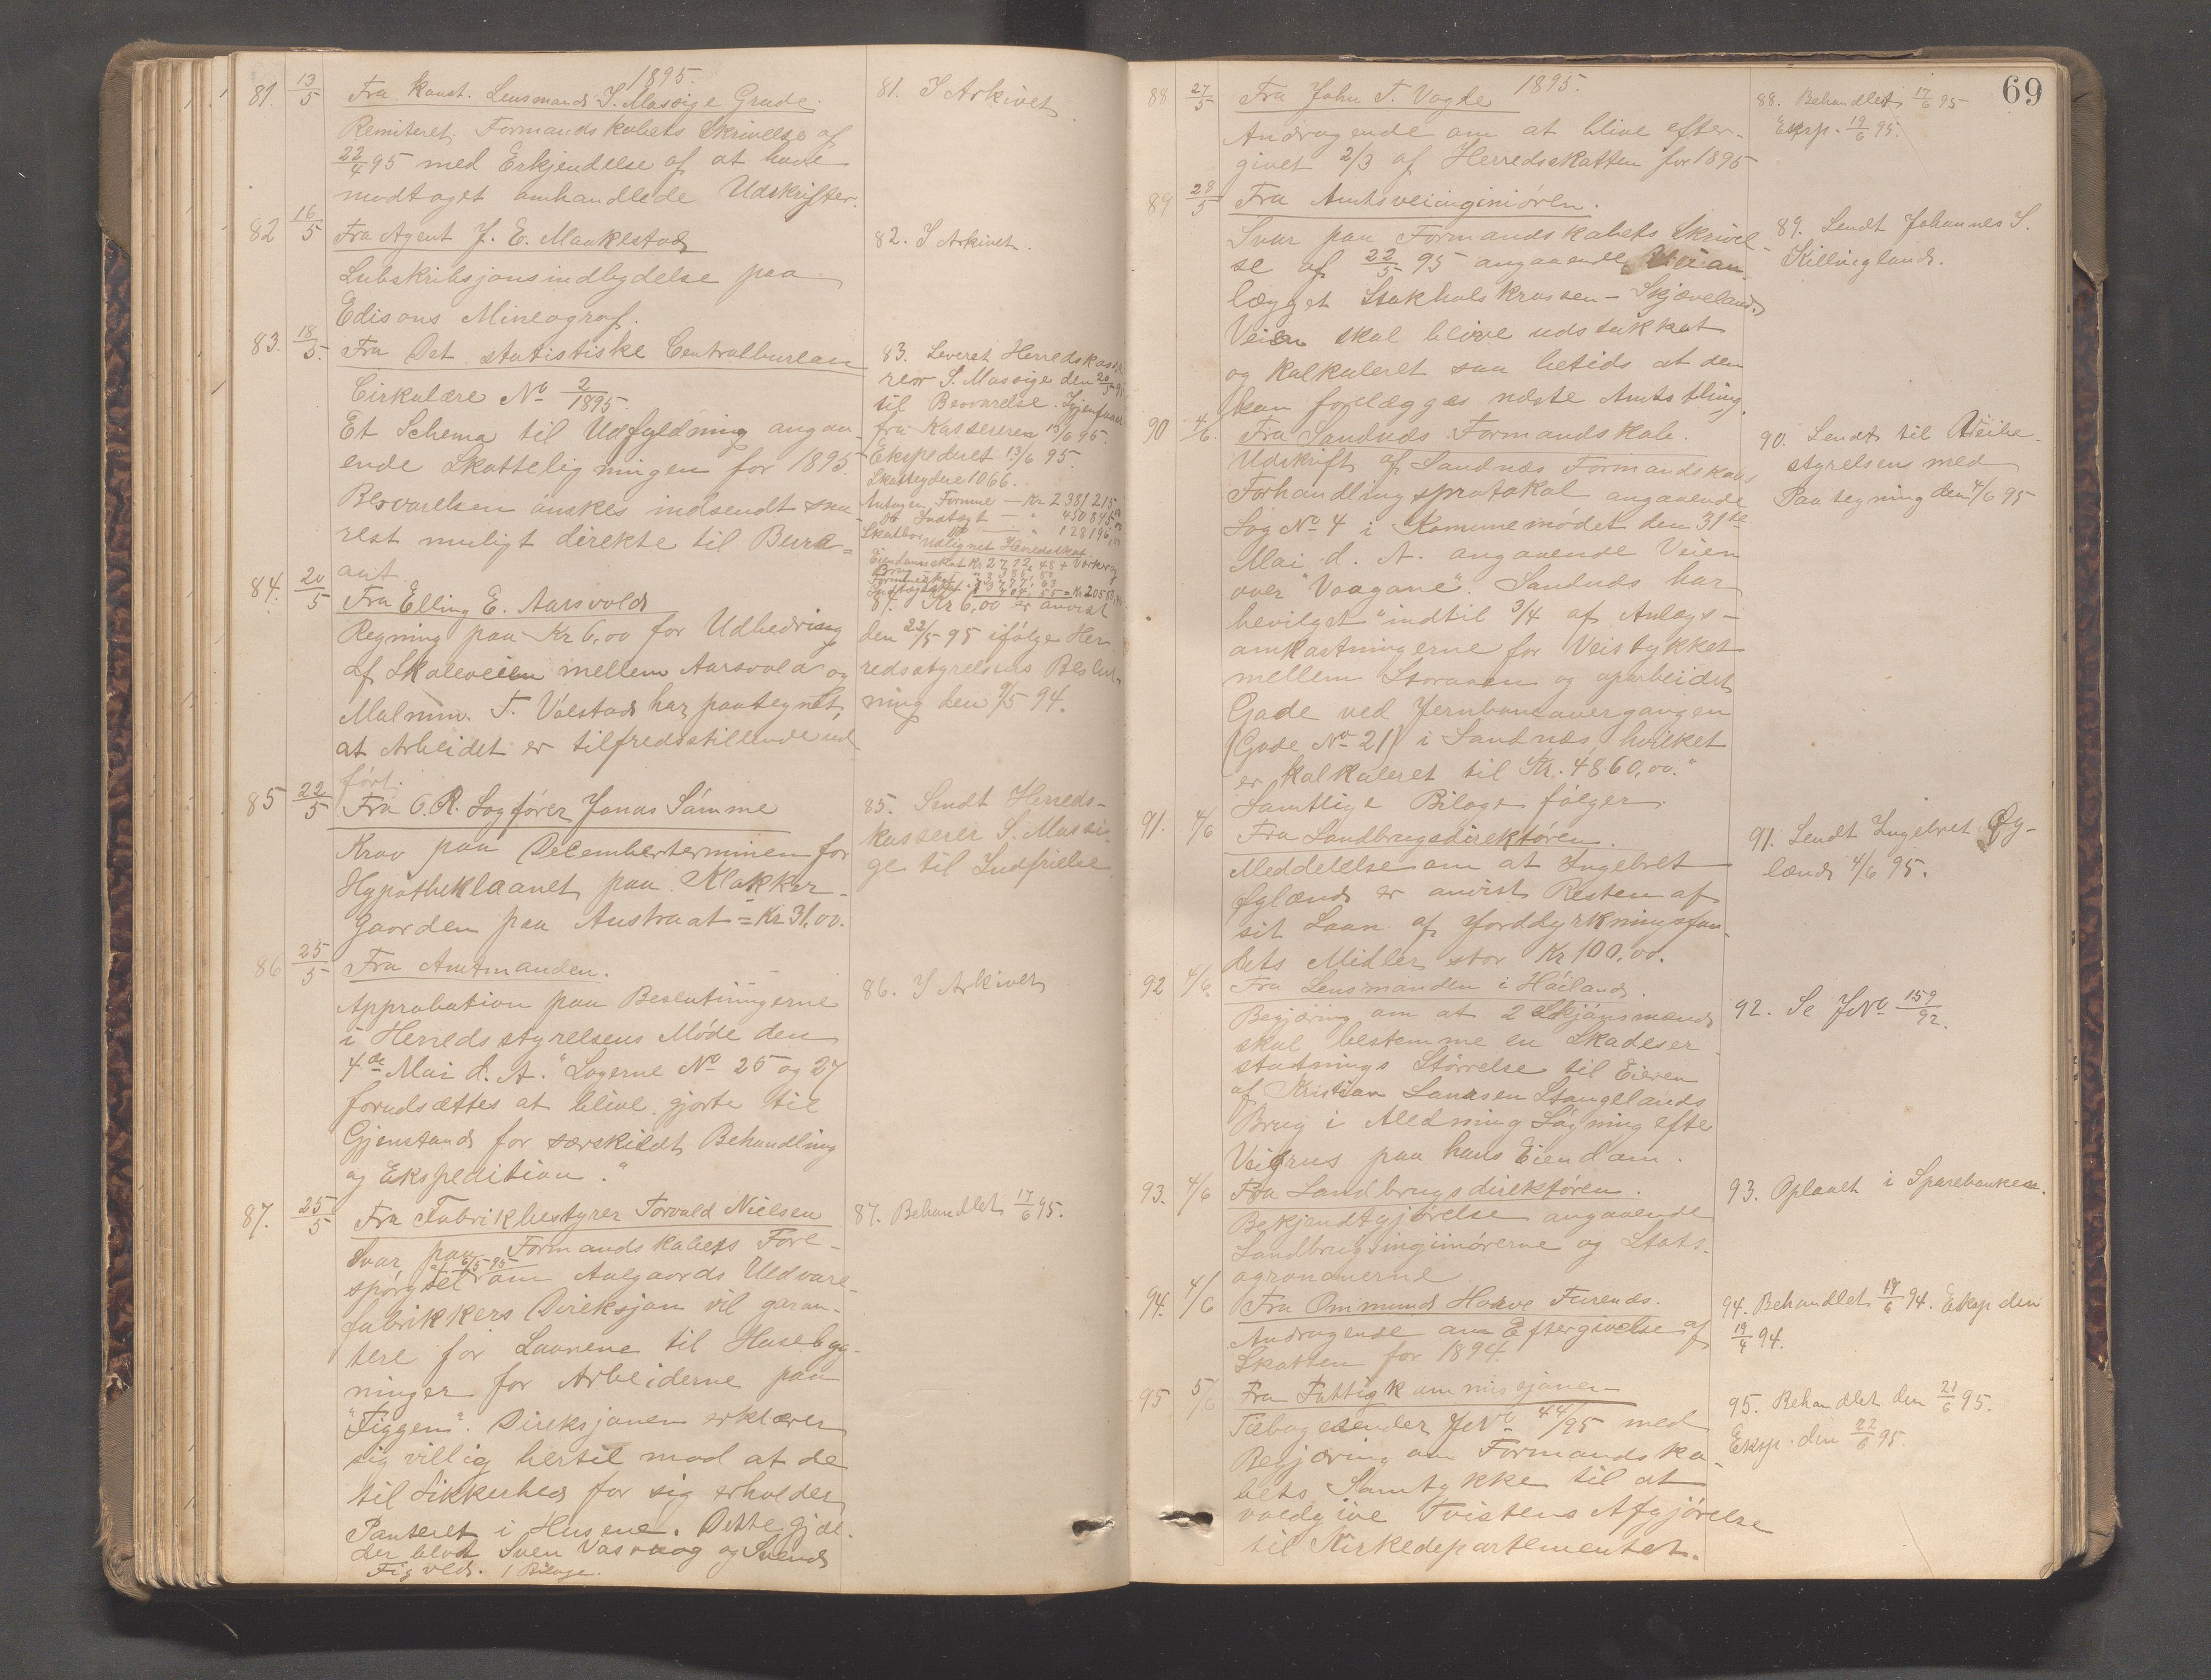 1895.
81. 13/5 Fra Konst. Lensmand S. Massige Grude.
Remiteret. Formandskabets Skrivelse af
22/4 95 med Erkjendelse af at have
modtaget omhandlede Udskrifter.
81. I Arkivet
82 16/5 Fra Agent J. E. Maukestad
Subskribsjonsindbydelse paa
Edisons Mineograf.
82. I Arkivet.
83. 18/5. Fra Det statistiske Centralbureau
Cirkulære No 2/1895.
Et Schema til Udfyldning angaa-
ende Skatteligningen for 1895.
Besvarelsen ønskes indsendt sna-
rest muligt direkte til Bure-
aut
83. Leveret Herredskasse
rer S. Massige den 20/5 95
til Besvarelse. Igjenfaaet
fra Kassereren 13/6 95.
Ekspederet 13/6 95.
Skatteydere 1066.
Antagen Formue - Kr 2 381 215,00
do Indtægt - " 450 845,00
Skatbar do - " 128196,00
Udlignet Herredsskat
84. 20/5 Fra Elling E. Aarsvold
Regning paa Kr 6,00 for Udbedring
af Skoleveien mellem Aarsvold og
Malmin. T. Valstad har paategnet,
at Arbeidet er tilfredsstillende ud-
ført.
84. Kr 6,00 er anvist
den 22/5 95 ifølge Her
redsstyrelsens Beslut-
ning den 9/5 94.
85 22/5 Fra O. R. Sagfører Jonas Sømme
Krav paa Decemberterminen for
Hypotheklaanet paa Klokker-
gaarden paa Austraat = Kr 31,00.
85. Sendt Herreds-
kasserer S. Massi-
ge til Indfrielse.
86 25/5 Fra Amtmanden.
Approbation paa Beslutningerne
i Herredsstyrelsens Møde den
4de Mai d. A. "Sagerne No 25 og 27
forudsættes at blive gjorte til
Gjenstand for særskildt Behandling
og Ekspedition."
86. I Arkivet
87. 25/5 Fra Fabrikbestyrer Torvald Nielsen
Svar paa Formandskabets Fore-
af 6/5 95
spørgsel om Aalgaards Uldvare-
fabrikkers Direksjon vil garan-
tere for Laanene til Husebyg-
ninger for Arbeiderne paa
"Figgen". Direksjonen erklærer
sig villig hertil mod at de
til Sikkerhed for sig erholder
Panteret i Husene. Dette gjæl-
der blot Sven Vasvaag og Svend
Figved. 1 Bilage.
87. Behandlet 17/6 95.
69
1895.
88 27/5 Fra John T. Vagle
Andragende om at blive efter-
givet 2/3 af Herredsskatten for 1895
88. Behandlet 17/6 95
Eksp. 19/6 95.
89 28/5 Fra Amtsveiinginiøren.
Svar paa Formandskabets Skrivel-
se af 22/5 95 angaaende Veian-
lægget Stokholskrossen - Skjæveland.
Veien skal blive udstukket
og kalkuleret saa betids at den
kan forelægges næste Amtsthing.
89. Sendt Johannes S.
Killingland.
90 4/6. Fra Sandnæs Formandskab.
Udskrift af Sandnæs Formandskabs
Forhandlingsprotokol angaaende
Sag No 4 i Komunemødet den 31te
Mai d. A. angaaende Veien
over "Vaagane". Sandnæs har
bevilget "indtil 3/4 af Anlægs-
omkastningerne for Veistykket
mellem Storaaen og oparbeidet
Gade ved Jernbaneovergangen
(Gade No 21) i Sandnæs, hvilket
er kalkuleret til Kr. 4860,00."
Samtlige Bilage følger.
90. Sendt til Veibe-
styrelsens med
Paategning den 4/6 95
91. 4/6 Fra Landbrugsdirektøren.
Meddelelse om at Ingebret
Øglænd er anvist Resten af
sit Laan af Jorddyrkningsfon-
dets Midler stor Kr 100,00.
91. Sendt Ingebret Øg-
lænd 4/6 95.
92 4/6. Fra Lensmanden i Høiland.
Begjæring om at 2 Skjønsmænd
skal bestemme en Skadeser-
statnings Størrelse til Eieren
af Kristian Larsen Stangelands
Brug i Aledning Søgning efte
Veigrus paa hans Eiendom.
92. Se JNo 159/92.
93. 4/6 Fra Landbrugsdirektøren.
Bekjendtgjørelse angaaende
Landbrugsinginiørerne og Stats-
agronomerne
93. Opslaaet i Sparebanken.
94. 4/6 Fra Ommund Hove Furenæs.
Andragende om Eftergivelse af
Skatten for 1894.
94. Behandlet 18/6 94. Eksp den
19/4 94.
95 5/6 Fra Fattigkommissjonen
Tilbagesender JNo 44/95 med
Begjæring om Formandska-
bets Samtykke til at
voldgive Tvistens Afgjørelse
til Kirkedepartementet.
95. Behandlet den 21/6 95.
Eksp. den 22/6 95.